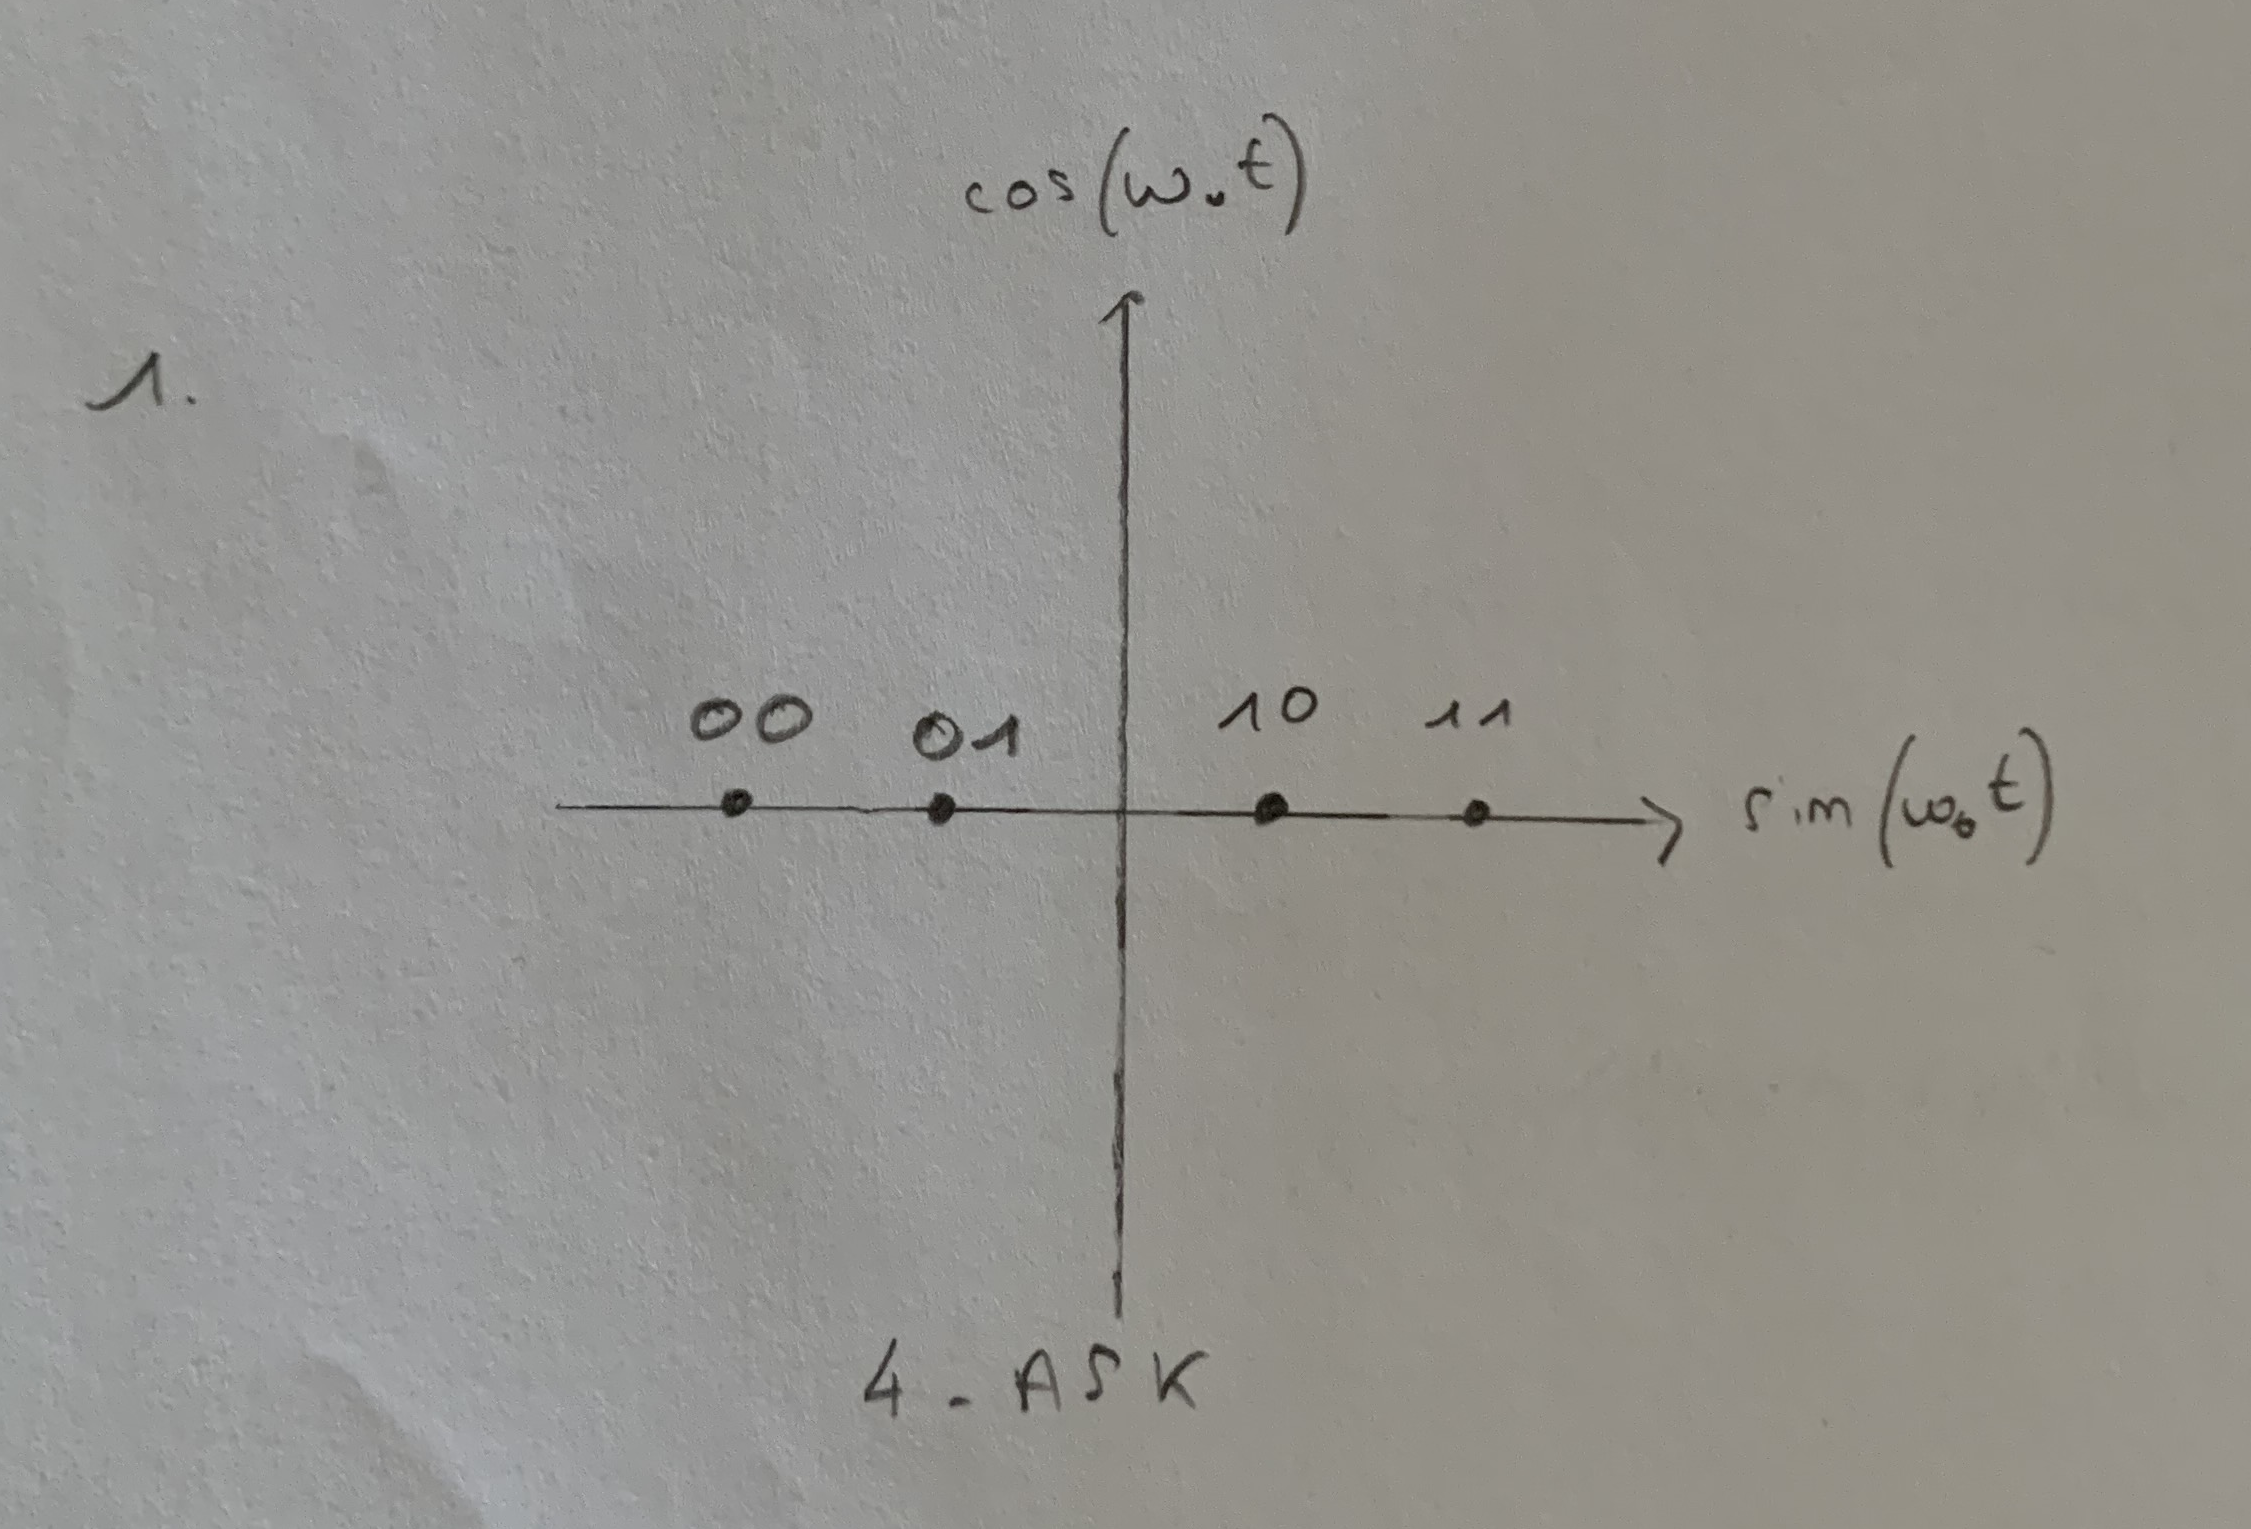 cos(ω₀t)
1.
00 01 10 11
sin(ω₀t)
4-ASK